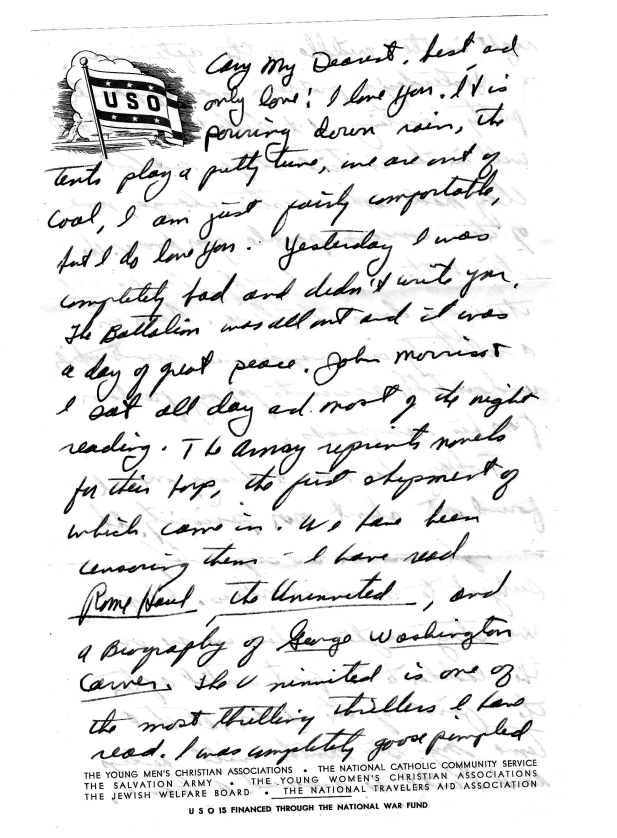 USO
Cary My Dearest, best and
only love! I love you. It is
pouring down rain, the
tents play a pretty tune, we are out of
Coal, I am just fairly comfortable,
but I do love you. Yesterday I was
completely bad and didn't write you.
The Battalion was all out and it was
a day of great peace. John Morris &
I sat all day ad most of the night
reading. The Army reprints novels
for their trps, the first shipment of
which came in. We have been
censoring them - I have read
Rome Haul, The Uninvited, and
a Biography of George Washington
Carver. The Uninvited is one of
the most thrilling thrillers I have
read. I was completely goose pimpled
THE YOUNG MEN'S CHRISTIAN ASSOCIATIONS • THE NATIONAL CATHOLIC COMMUNITY SERVICE
THE SALVATION ARMY • THE YOUNG WOMEN'S CHRISTIAN ASSOCIATIONS
THE JEWISH WELFARE BOARD • THE NATIONAL TRAVELERS AID ASSOCIATION
USO IS FINANCED THROUGH THE NATIONAL WAR FUND